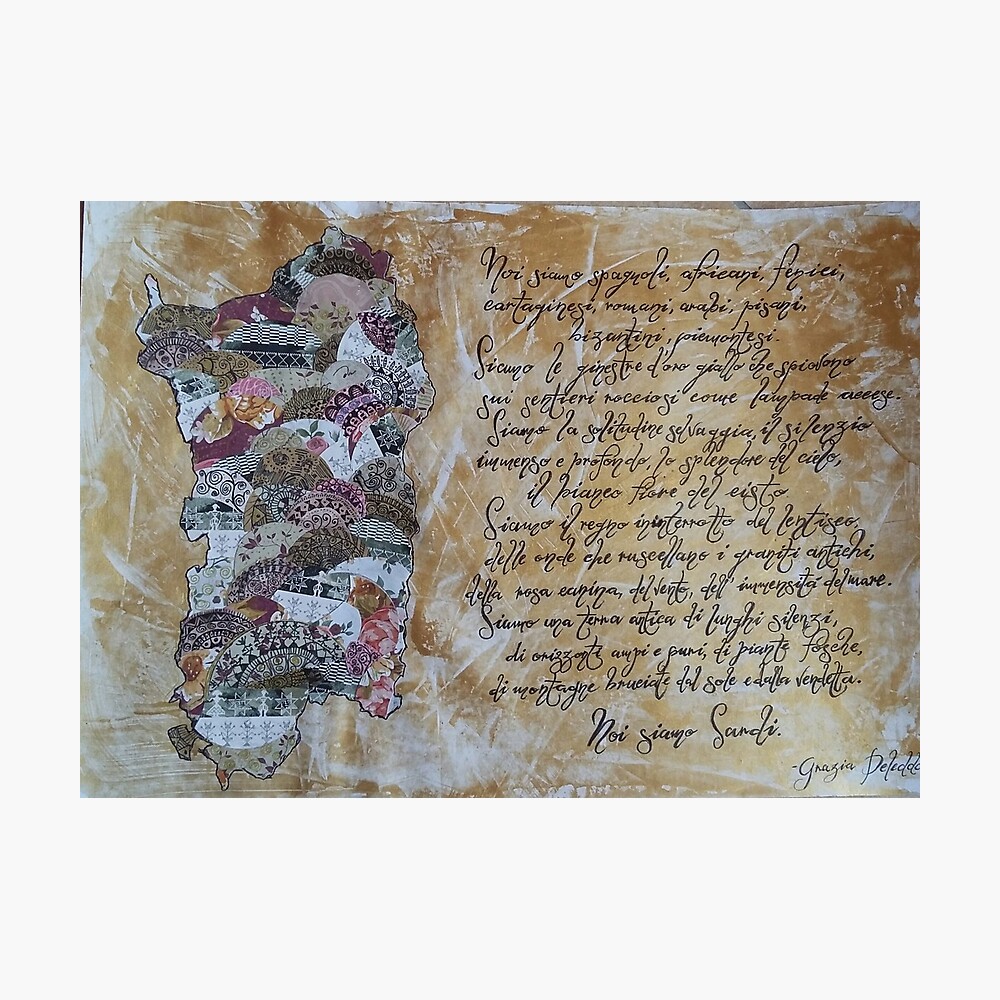 Noi siamo spagnoli, africani, fenici,
cartaginesi, romani, arabi, pisani,
bizantini, piemontesi.
Siamo le ginestre d'oro giallo che spiovono
sui sentieri rocciosi come lampade accese.
Siamo la solitudine selvaggia, il silenzio
immenso e profondo, lo splendore del cielo,
il bianco fiore del cisto.
Siamo il regno ininterrotto del lentisco,
delle onde che ruscellano i graniti antichi,
della rosa canina, del vento, dell'immensità del mare.
Siamo una terra antica di lunghi silenzi,
di orizzonti ampi e puri, di piante fosche,
di montagne bruciate dal sole e dalla vendetta.
Noi siamo Sardi.
-Grazia Deledda